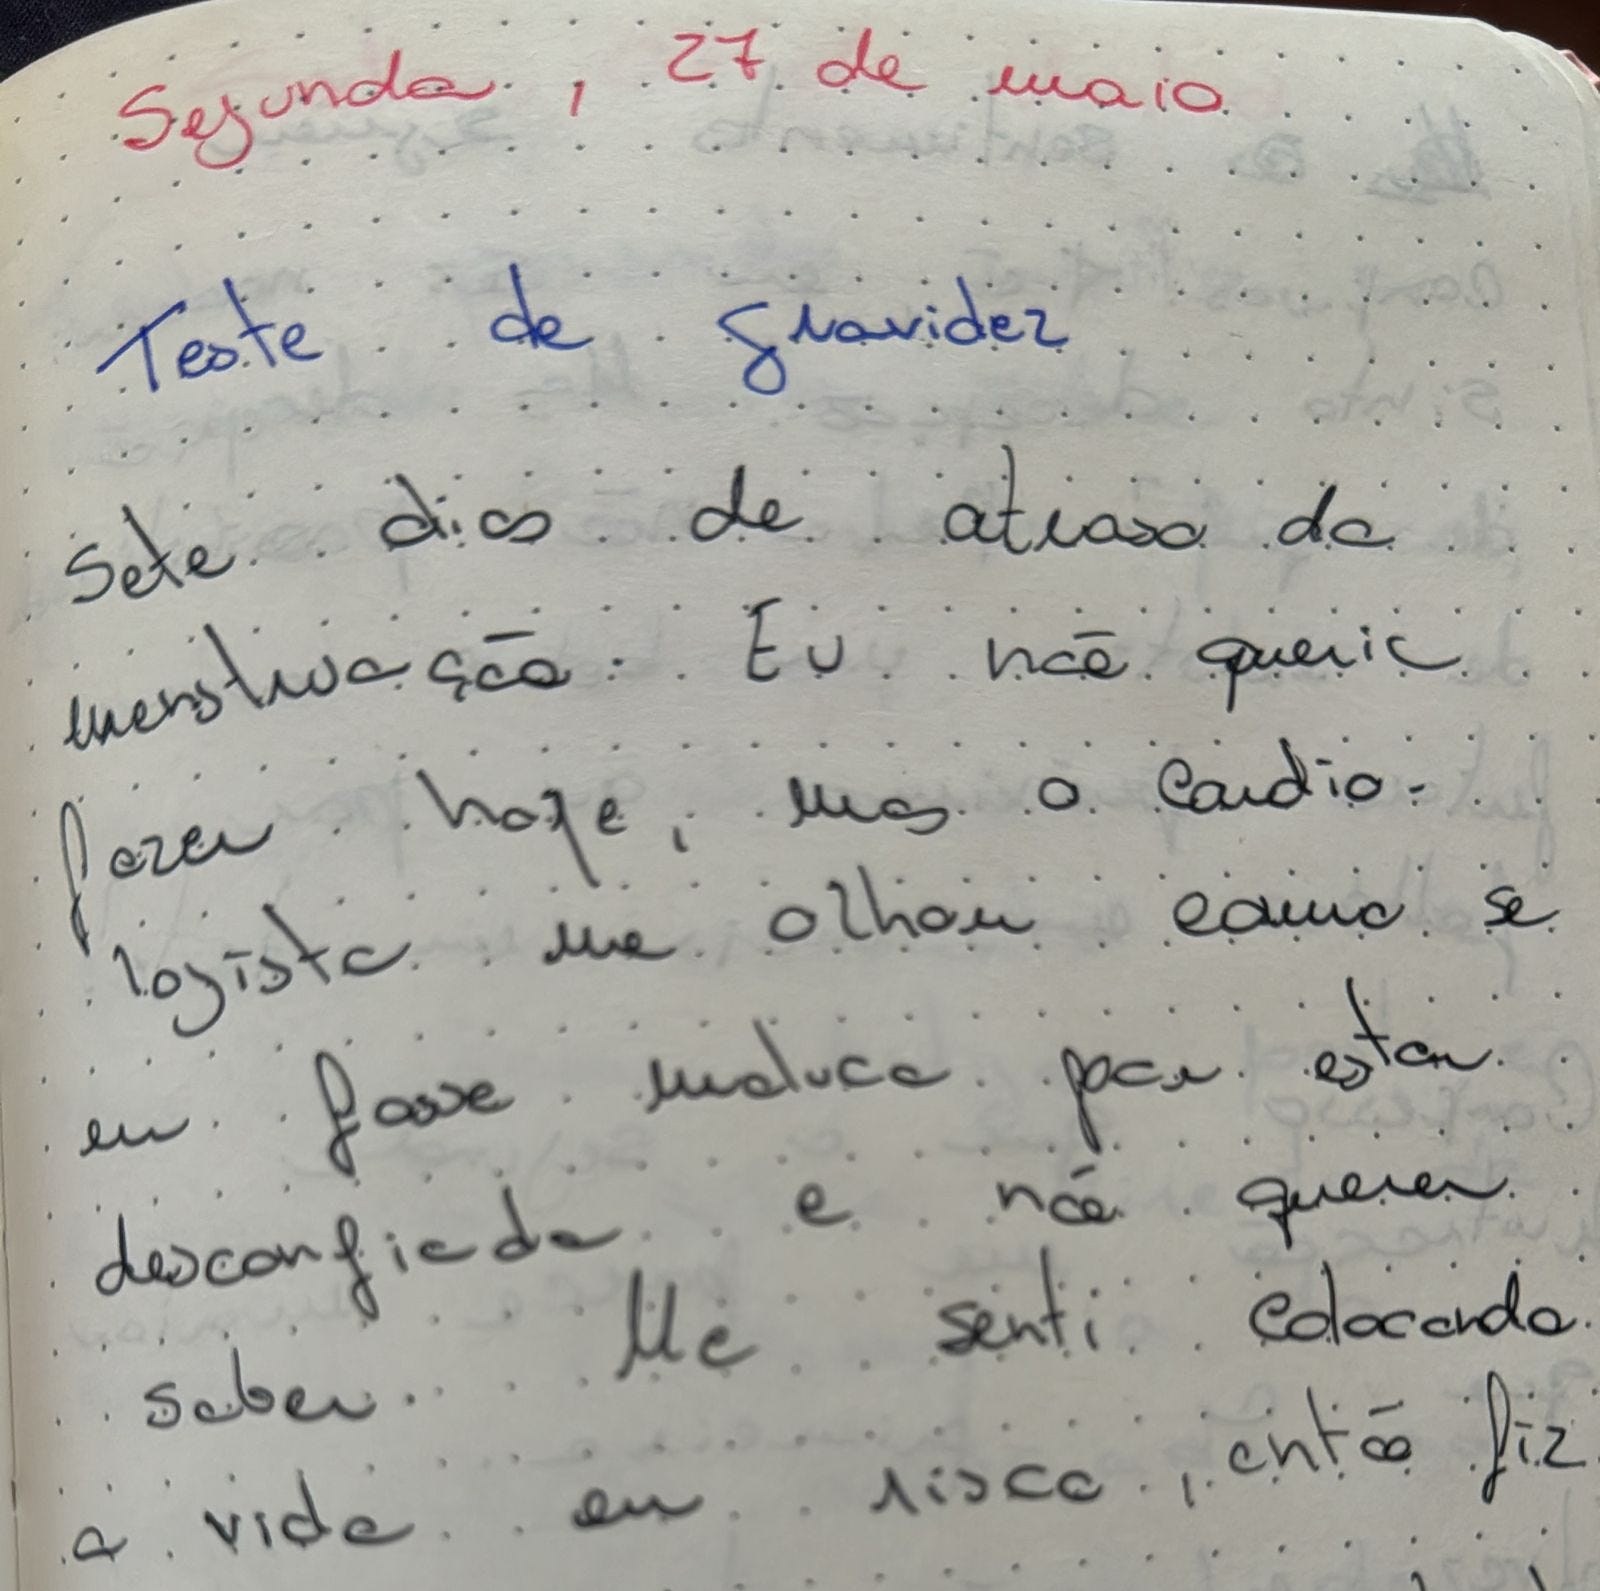 Segunda, 27 de maio
Teste de gravidez
Sete dias de atraso da
menstruação. Eu não queria
fazer hoje, mas o cardio-
logista me olhou como se
eu fosse maluca por estar
desconfiada e não querer
saber. Me senti colocando
a vida em risco, então fiz